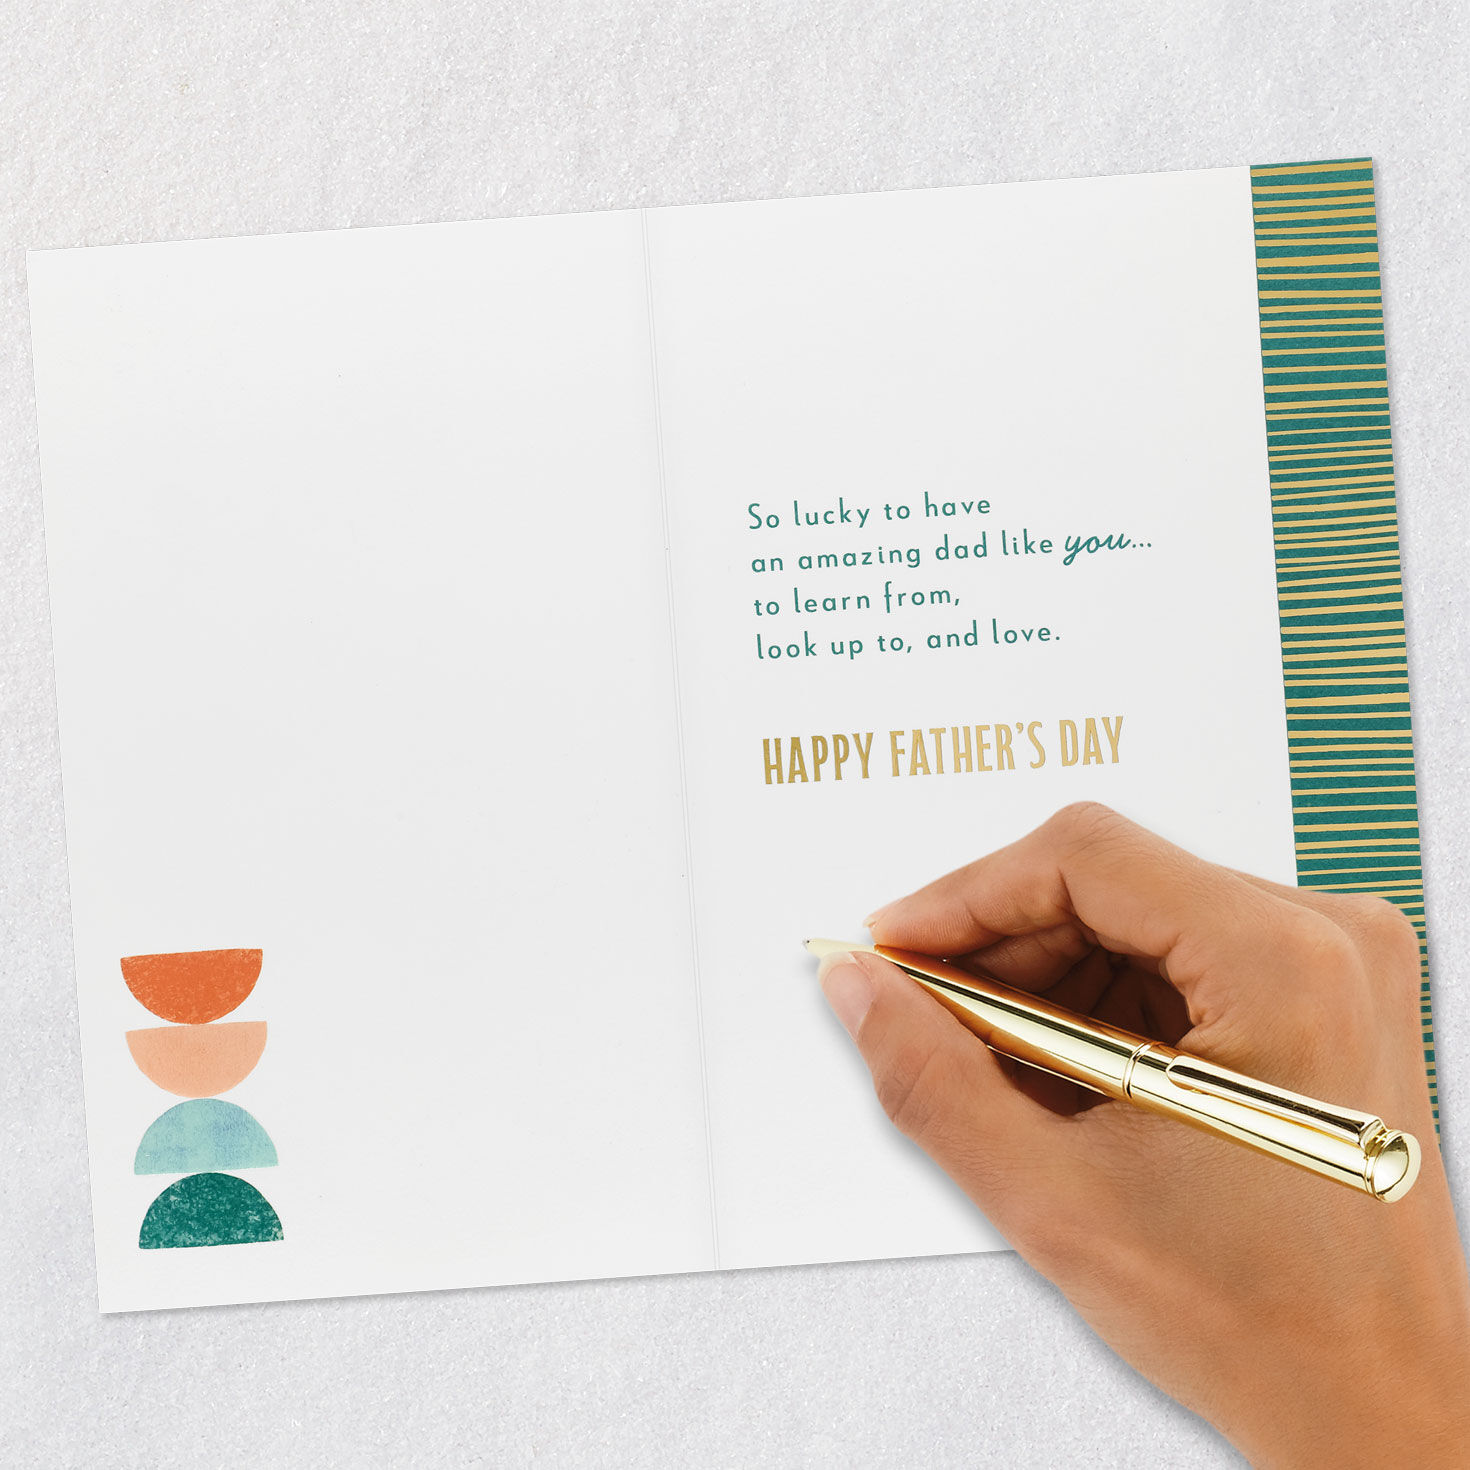 So lucky to have
an amazing dad like you...
to learn from,
look up to, and love.
HAPPY FATHER'S DAY